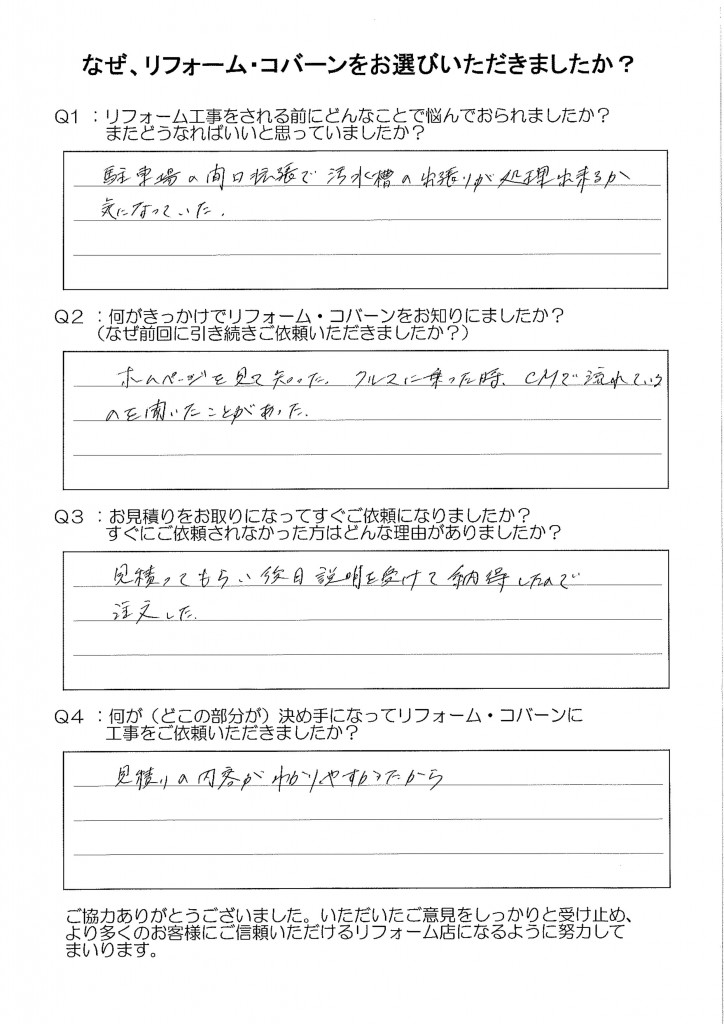 なぜ、リフォーム・コバーンをお選びいただきましたか？
Q1 ：リフォーム工事をされる前にどんなことで悩んでおられましたか？
またどうなればいいと思っていましたか？
駐車場の間口拡張で汚水槽の出張りが処理出来るか
気になっていた.
Q2 ：何がきっかけでリフォーム・コバーンをお知りにましたか？
（なぜ前回に引き続きご依頼いただきましたか？）
ホームページを見て知った. クルマに乗った時、CMで流れている
のを聞いたことがあった.
Q3 ：お見積りをお取りになってすぐご依頼になりましたか？
すぐにご依頼されなかった方はどんな理由がありましたか？
見積ってもらい後日説明を受けて納得したので
注文した.
Q4 ：何が（どこの部分が）決め手になってリフォーム・コバーンに
工事をご依頼いただきましたか？
見積りの内容がわかりやすかったから
ご協力ありがとうございました。いただいたご意見をしっかりと受け止め、
より多くのお客様にご信頼いただけるリフォーム店になるように努力して
まいります。